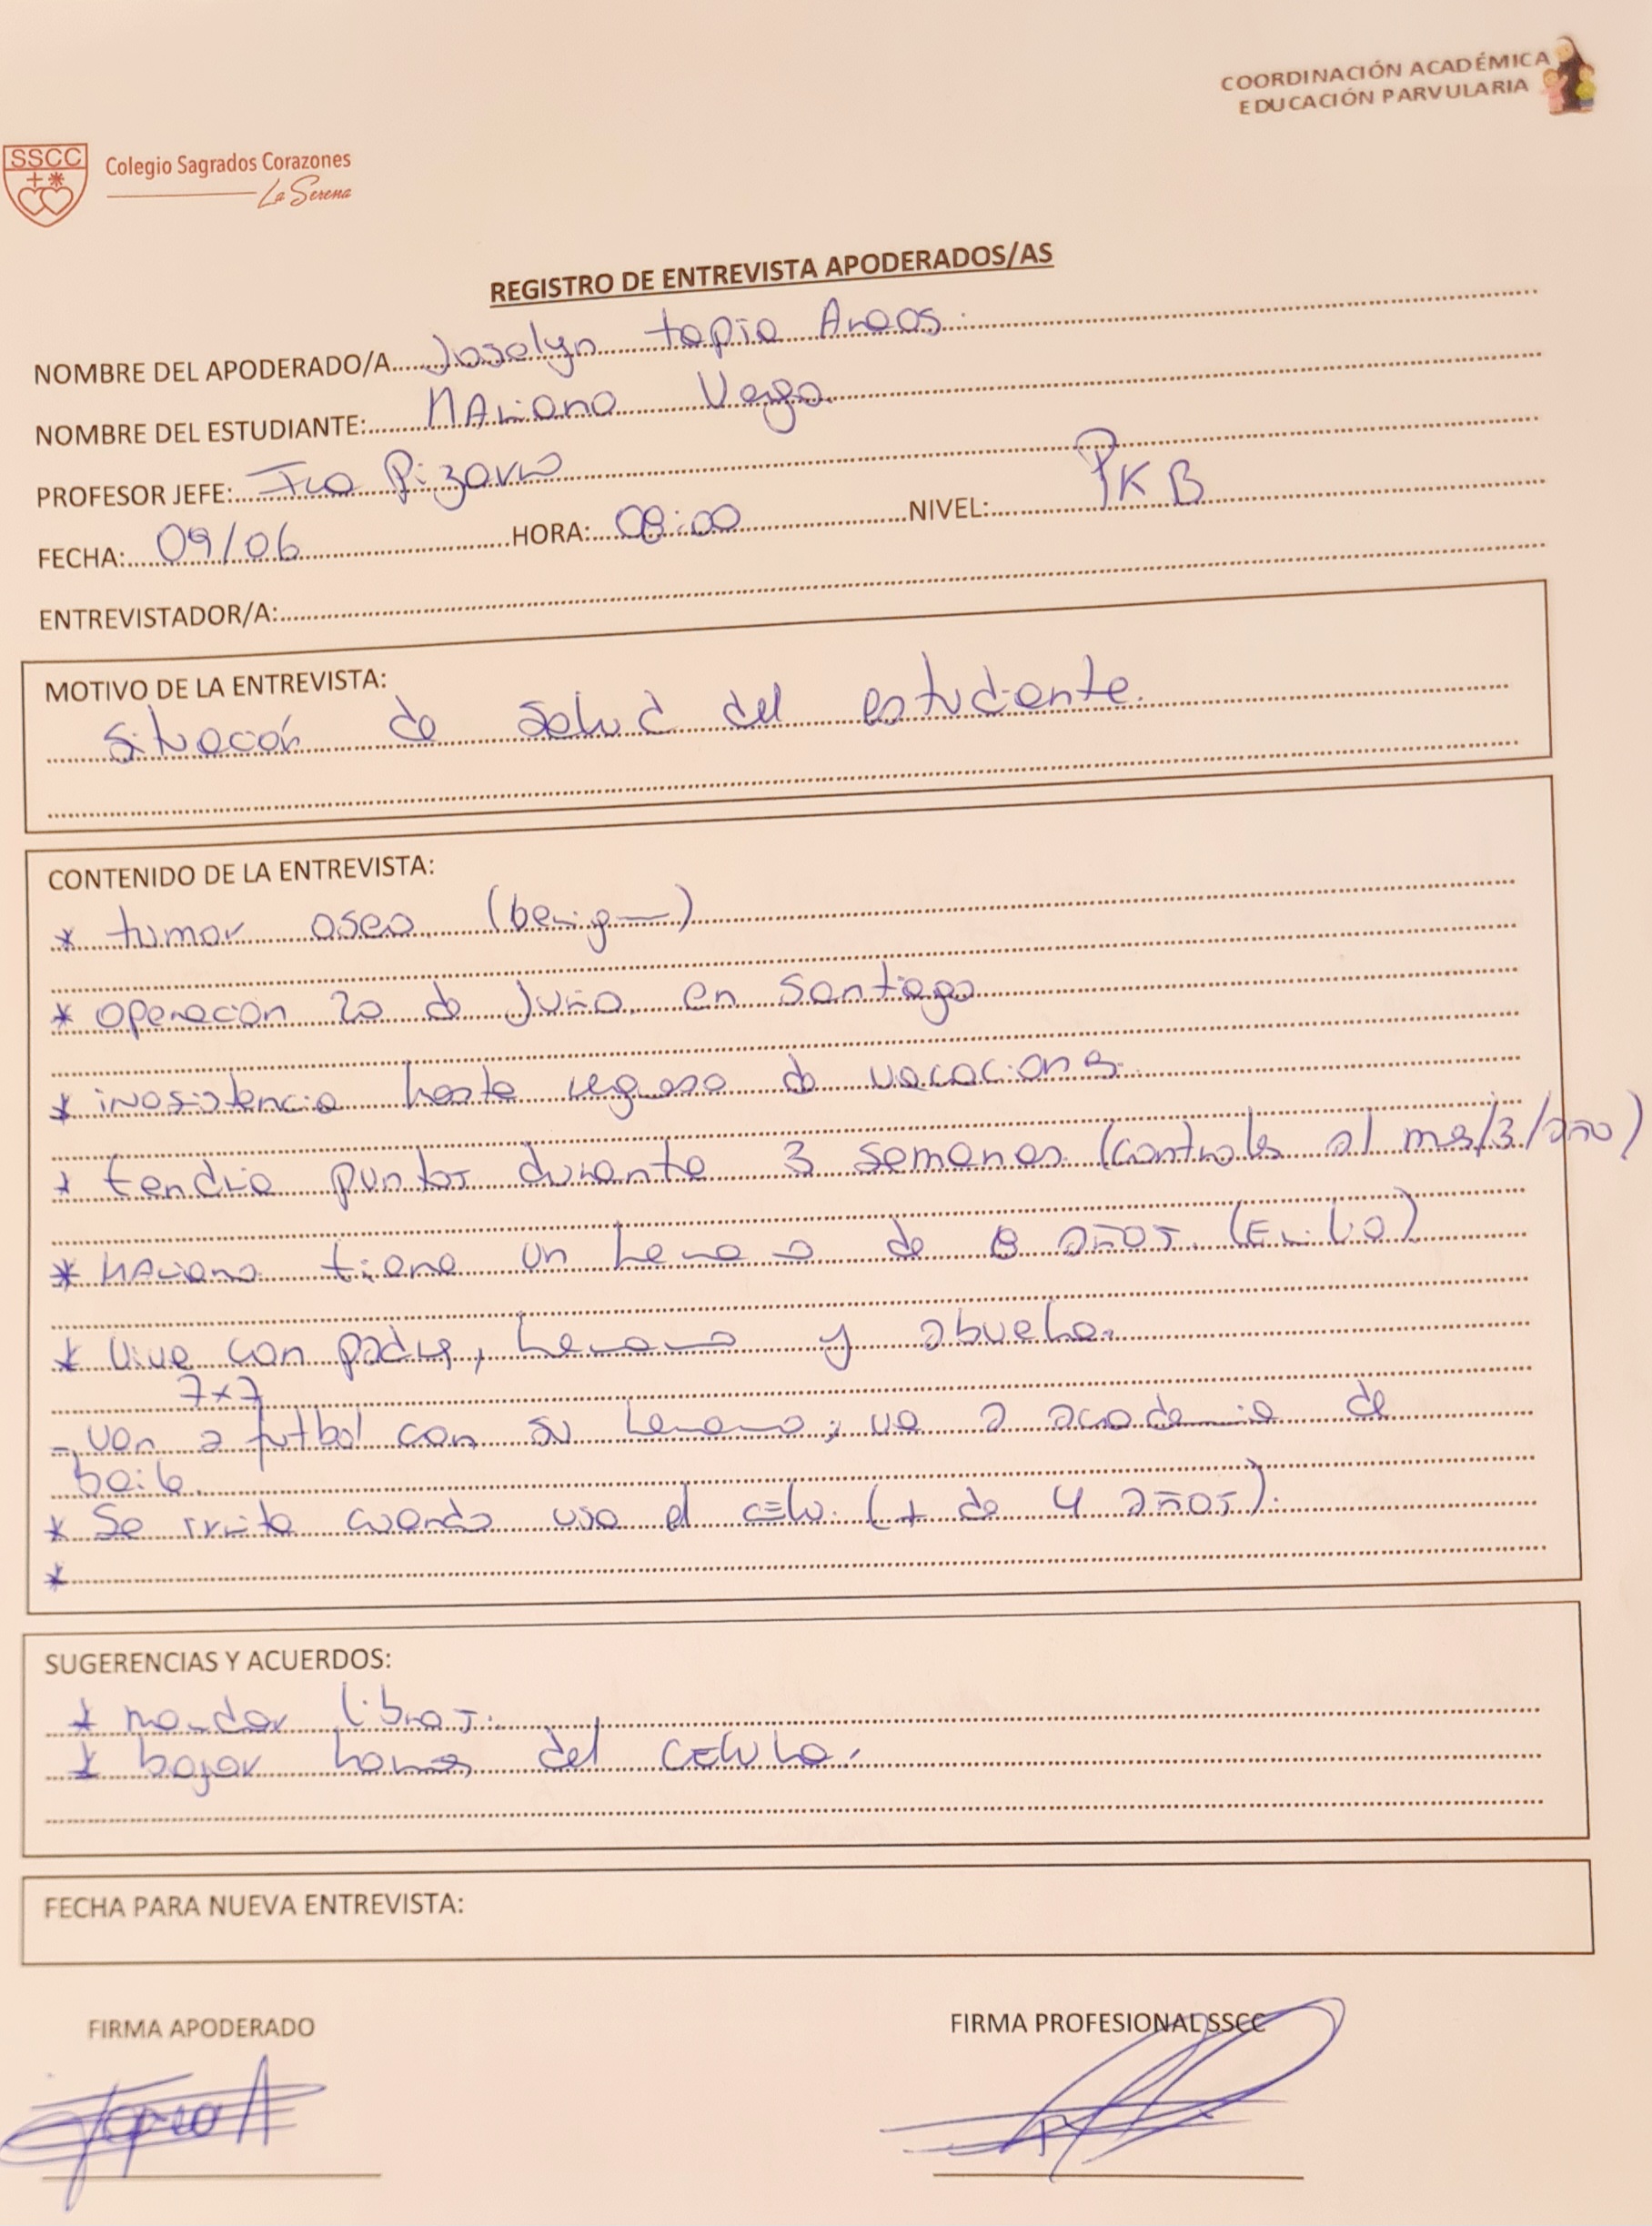 COORDINACIÓN ACADÉMICA
EDUCACIÓN PARVULARIA
SSCC
Colegio Sagrados Corazones
La Serena
REGISTRO DE ENTREVISTA APODERADOS/AS
NOMBRE DEL APODERADO/A Joselyn tapia Araos.
NOMBRE DEL ESTUDIANTE: MAriana Vega.
PROFESOR JEFE: Fca Pizarro
FECHA: 09/06 HORA: 08:00 NIVEL: PKB
ENTREVISTADOR/A:
MOTIVO DE LA ENTREVISTA:
Situación de salud del estudiante.
CONTENIDO DE LA ENTREVISTA:
* tumor oseo (benigno)
* operación 20 de Junio. en Santiago
* inasistencia hasta regreso de vacaciones.
* tendra puntos durante 3 semanas (controles al mes/3/año)
* MAriana tiene un hermano de 8 años. (Emilio)
* Vive con padres, hermano y abuela.
7x7
- van a futbol con su hermano; va a academia de
baile.
* Se irrita cuando usa el celu. (+ de 4 años).
*
SUGERENCIAS Y ACUERDOS:
* mandar libros.
* bajar horas del celular.
FECHA PARA NUEVA ENTREVISTA:
FIRMA APODERADO FIRMA PROFESIONAL SSCC